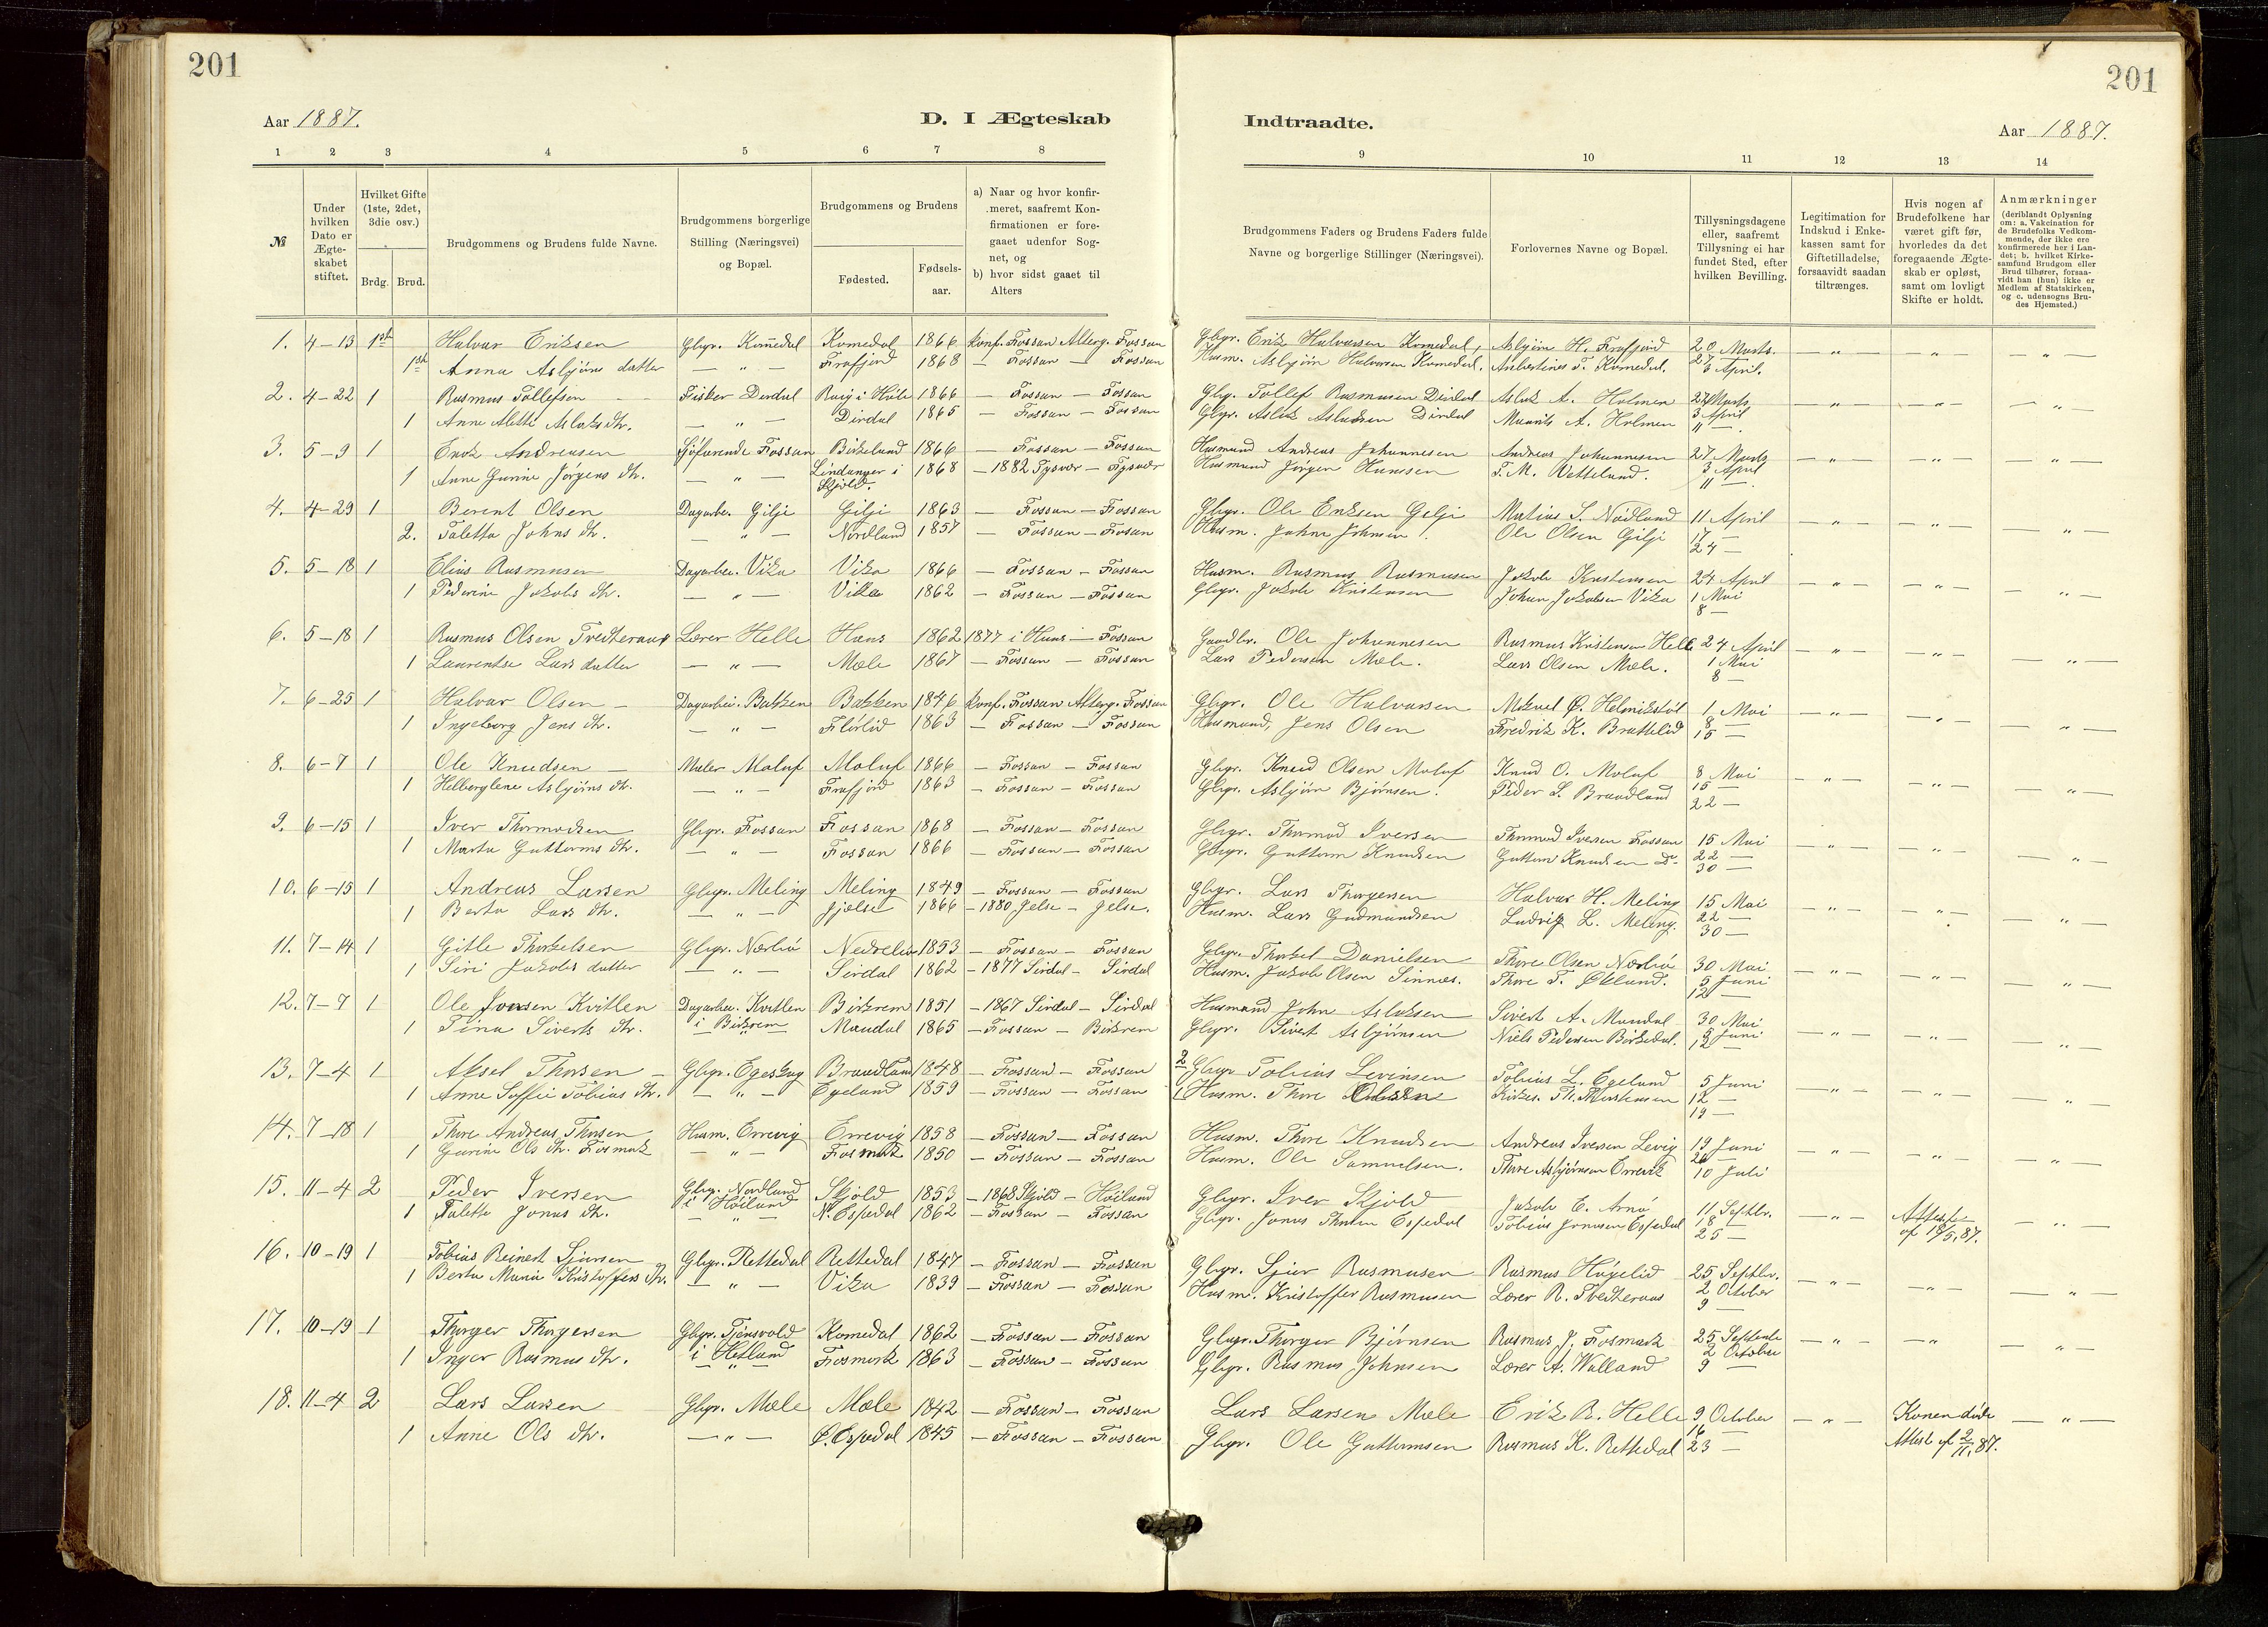 201
201
Aar 1887.
D. I Ægteskab
Indtraadte.
Aar 1887.
1 2 3 4 5 6 7 8
9 10 11 12 13 14
№
Under hvilken Dato er Ægteskabet stiftet.
Hvilket Gifte (1ste, 2det, 3die osv.)
Brdg. Brud.
Brudgommens og Brudens fulde Navne.
Brudgommens borgerlige Stilling (Næringsvei) og Bopæl.
Brudgommens og Brudens
Fødested.
Fødselsaar.
a) Naar og hvor konfirmeret, saafremt Konfirmationen er foregaaet udenfor Sognet, og
b) hvor sidst gaaet til Alters
Brudgommens Faders og Brudens Faders fulde Navne og borgerlige Stillinger (Næringsvei).
Forlovernes Navne og Bopæl.
Tillysningsdagene eller, saafremt Tillysning ei har fundet Sted, efter hvilken Bevilling.
Legitimation for Indskud i Enkekassen samt for Giftetilladelse, forsaavidt saadan tiltrænges.
Hvis nogen af Brudefolkene har været gift før, hvorledes da det foregaaende Ægteskab er opløst, samt om lovligt Skifte er holdt.
Anmærkninger
(deriblandt Oplysning om: a. Vakcination for de Brudefolks Vedkommende, der ikke ere konfirmerede her i Landet; b. hvilket Kirkesamfund Brudgom eller Brud tilhører, forsaavidt han (hun) ikke er Medlem af Statskirken, og c. udensogns Brudes Hjemsted.)
1. 4–13 1ste Halvar Eriksen Gbgr. Komedal Komedal 1866 konf. Fossan Alterg. Fossan Gbgr. Erik Halvarsen Komedal, Asbjörn H. Frafjord 20 Marts.
1ste Anna Asbjörns datter — " — Frafjord 1868 — Fossan — Fossan Husm. Asbjörn Halvorsen Komedal. T. Komedal. 27 3 April.
2. 4–22 1 Rasmus Tollefsen Fisker Dirdal i Höle 1866 — Fossan — Fossan Gbgr. Tollef Rasmusen Dirdal Aslak A. Holmen 27 Marts
1 Anne Alette Aslaks dtr. — " — Dirdal 1865 — Fossan — Fossan Gbgr. Aslak Aslaksen Dirdal Maurits A. Holmen 3 April 11 —
3. 5–9 1 Erik Andreasen Sjöfarende Fossan Birkeland 1866 — Fossan — Fossan Husmand Andreas Johannesen Andreas Johannesen 27 Marts
1 Anne Gurine Jörgens dtr. — " — i Skjold. 1868 — 1882 Tysvær — Tysvær Husmand Jörgen Hansen T. M. Vetteland. 3 April 11 —
4. 4–29 1 Berent Olsen Dagarbe. Gilje Gilje 1863 — Fossan — Fossan Gbgr. Ole Eriksen Gilje Matias S. Nödland 11 April
2. Taletta Johns dtr. — " — Nordland 1857 — Fossan — Fossan Husm. Johne Johnsen. Ole Olsen Gilje 17 — 24 —
5. 5–18 1 Elias Rasmusen Dagarbei. Vika Vika 1866 — Fossan — Fossan Husm. Rasmus Rasmusen Jakob Kristensen 24 April
1 Pederine Jakobs dtr. — " — Vika 1862 — Fossan — Fossan Gbgr. Jakob Kristensen Johan Jakobsen Vika 1 Mai 8 —
6. 5–18 1 Rasmus Olsen Tvedteraas Lærer Helle Haus 1862 1877 i Haus — Fossan Gaardbr. Ole Johannesen Rasmus Kristensen Helle 24 April
1 Laurentse Lars datter — " — Mæle 1867 — Fossan — Fossan Lars Pedersen Mæle. Lars Olsen Mæle. 1 Mai 8 —
7. 6–25 1 Halvar Olsen — Dagarbei. Bakken Bakken 1846 konf. Fossan Alterg. Fossan Gbgr. Ole Halvarsen Mikael Ø. Helmikstöl 1 Mai
1 Ingeborg Jens dtr. — " — Flörlid 1863 — Fossan — Fossan Husmand, Jens Olsen Fredrik K. Brattelid 8 — 15 —
8. 6–7 1 Ole Knudsen — Maler Maluf Maluf 1866 — Fossan — Fossan Gbgr. Knud Olsen Maluf Knud O. Maluf 8 Mai
1 Helberglene Asbjörns dtr. — " — Frafjord 1863 — Fossan — Fossan Gbgr. Asbjörn Björnsen. Peder S. Braadland 15 — 22 —
9. 6–15 1 Iver Thormodsen Gbgr. Fossan Fossan 1868 — Fossan — Fossan Gbgr. Thormod Iversen Thormod Iversen Fossan 15 Mai
1 Marta Guttorms dtr. — " — Fossan 1866 — Fossan — Fossan Gbgr. Guttorm Knudsen Guttorm Knudsen do. 22 — 30 —
10. 6–15 1 Andreas Larsen Gbgr. Meling Meling 1849 — Fossan — Fossan Gbgr. Lars Thorgersen Halvar H. Meling 15 Mai
1 Berta Lars dtr. — " — Jjelse 1866 — 1880 Jelse — Jelse. Husm. Lars Gudmundsen Ludvig L. Meling. 22 — 30 —
11. 7–14 1 Gitle Thorkelsen Gbgr. Nærlió Nedrelió 1853 — Fossan — Fossan Gbgr. Thorkel Danielsen Thore Olsen Nærlió 30 Mai
1 Siri Jakobs datter — " — Sirdal 1862 — 1877 Sirdal — Sirdal Husm. Jakob Olsen Sinnæs. Thore T. Ökland. 5 Juni 12 —
12. 7–7 1 Ole Jonsen Kvitlen Dagarbei. Kvitlen Birkrem 1851 — 1867 Sirdal — Sirdal Husmand John Aslaksen Sivert A. Maudal 30 Mai
1 Tina Siverts dtr. i Birkrem Maudal 1865 — Fossan — Birkrem Gbgr. Sivert Asbjörnsen Niels Pedersen Birkedal. 5 Juni 12 —
13. 7–4 1 Aksel Thorsen — Gbgr. Egeskog Braadland 1848 — Fossan — Fossan 2 Gbgr Tobias Levinsen Tobias L. Egeland 5 Juni
1 Anne Soffie Tobias dtr. — " — Egeland 1859 — Fossan — Fossan 1 Husm. Thore Olsen Kirkes. Th. Thorstensen 12 — 19 —
14. 7–18 1 Thore Andreas Thorsen Husm. Errevig Errevig 1858 — Fossan — Fossan Husm. Thore Knudsen Andreas Iversen Levig 19 Juni
1 Gurine Ols dtr. Fosmark — " — Fosmark 1850 — Fossan — Fossan Husm. Ole Samuelsen. Thore Asbjörnsen Errevik 26 10 Juli
15. 11–4 2 Peder Iversen Gbgr. Nordland i Höiland Skjold 1853 — 1868 Skjold — Höiland Gbgr. Iver Skjold Jakob E. Arnö 11 Septbr. Attester
1 Taletta Jonas dtr. — " — N. Espedal 1862 — Fossan — Fossan Gbgr. Jonas Espedal Tobias Jonasen Espedal 18 — 25 — af 18/5. 87.
16. 10–19 1 Tobias Reinert Sjursen Gbgr. Rettedal Rettedal 1847 — Fossan — Fossan Gbgr. Sjur Rasmusen Rasmus Högelid 25 Septbr.
1 Berta Maria Kristoffers dtr. — " — Vika 1839 — Fossan — Fossan Husm. Kristoffer Rasmusen Lærer R. Tvedteraas 2 October 9 —
17. 10–19 1 Thorger Thorgersen Gbgr. Tjensvold Komedal 1862 — Fossan — Fossan Gbgr. Thorger Bjørnsen Rasmus J. Fosmark 25 Septembr
1 Inger Rasmus dtr. i Hetland Fosmark 1863 — Fossan — Fossan Gbgr. Rasmus Johnsen Lærer A. Walland 2 October 9 —
18. 11–4 2 Lars Larsen Gbgr. Mæle Mæle 1842 — Fossan — Fossan Lars Larsen Mæle Erik R. Helle 9 October Konen döde
1 Anne Ols dtr. — " — Ö. Espedal 1845 — Fossan — Fossan Gbgr. Ole Guttormsen Rasmus K. Rettedal 16 — 23 — Attest af 2/11. 87.